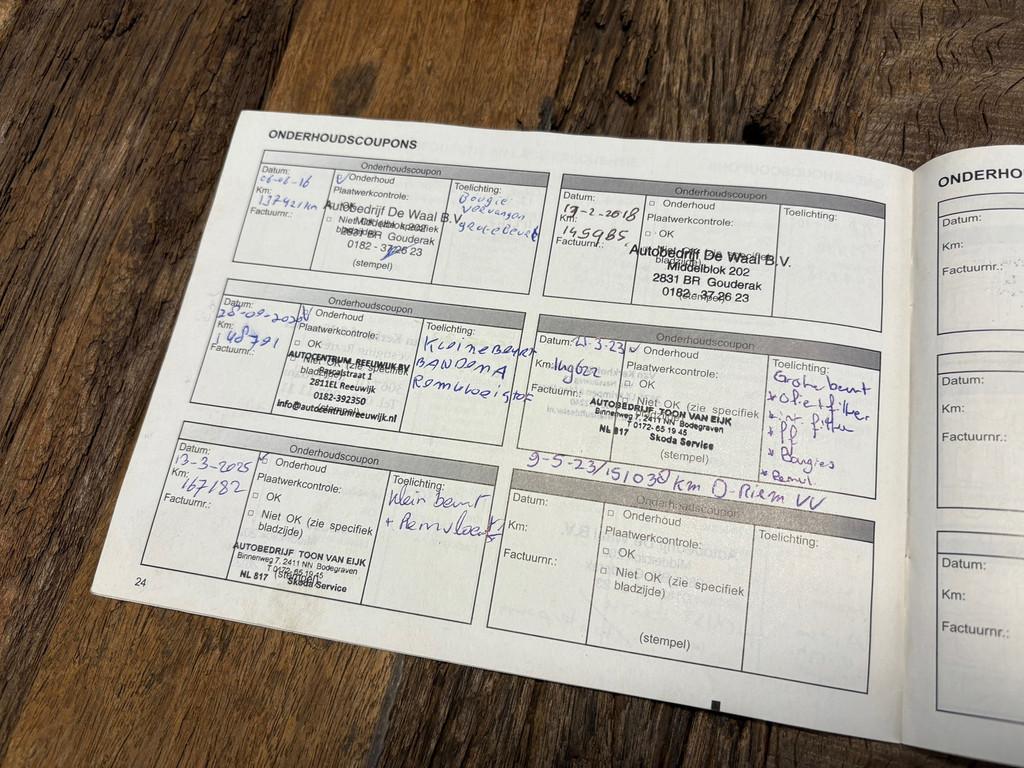 ONDERHOUDSCOUPONS
Onderhoudscoupon
Datum:
06-06-16
Km:
137421 km
Factuurnr.:
Onderhoud
Plaatwerkcontrole:
OK
Autobedrijf De Waal B.V.
Middelblok 202
2831 BR Gouderak
0182 - 37 26 23
(stempel)
Toelichting:
Bougie
vervangen
grote beurt
Onderhoudscoupon
Datum:
19-2-2018
Km:
145985
Factuurnr.:
Onderhoud
Plaatwerkcontrole:
OK
Autobedrijf De Waal B.V.
Middelblok 202
2831 BR Gouderak
0182 - 37 26 23
Toelichting:
Onderhoudscoupon
Datum:
28-09-2020
Km:
148791
Factuurnr.:
Onderhoud
Plaatwerkcontrole:
OK
Niet OK (zie specifiek
bladzijde)
AUTOCENTRUM REEUWIJK BV
Pascalstraat 1
2811EL Reeuwijk
0182-392350
info@autocentrumreeuwijk.nl
(stempel)
Toelichting:
Kleine Beurt
Remvloeistof
Onderhoudscoupon
Datum:
Km:
Factuurnr.:
Onderhoud
Plaatwerkcontrole:
OK
Niet OK (zie specifiek
bladzijde)
AUTOBEDRIJF TOON VAN EIJK
Binnenweg 7, 2411 NN Bodegraven
T 0172- 65 19 45
NL 817 Skoda Service
(stempel)
Toelichting:
Grote beurt
* Oliefilter
* int. filter
* Bougies
* Remvl.
9-5-23/151038 km D-Riem VV
Onderhoudscoupon
Datum:
13-3-2025
Km:
167182
Factuurnr.:
Onderhoud
Plaatwerkcontrole:
OK
Niet OK (zie specifiek
bladzijde)
AUTOBEDRIJF TOON VAN EIJK
Binnenweg 7, 2411 NN Bodegraven
T 0172- 65 19 45
NL 817 (stempel) Skoda Service
Toelichting:
Klein beurt
+ Remvloeist
Onderhoudscoupon
Datum:
Km:
Factuurnr.:
Onderhoud
Plaatwerkcontrole:
OK
Niet OK (zie specifiek
bladzijde)
(stempel)
Toelichting:
24
ONDERHO
Datum:
Km:
Factuurnr.:
Datum:
Km:
Factuurnr.:
Datum:
Km:
Factuurnr.: